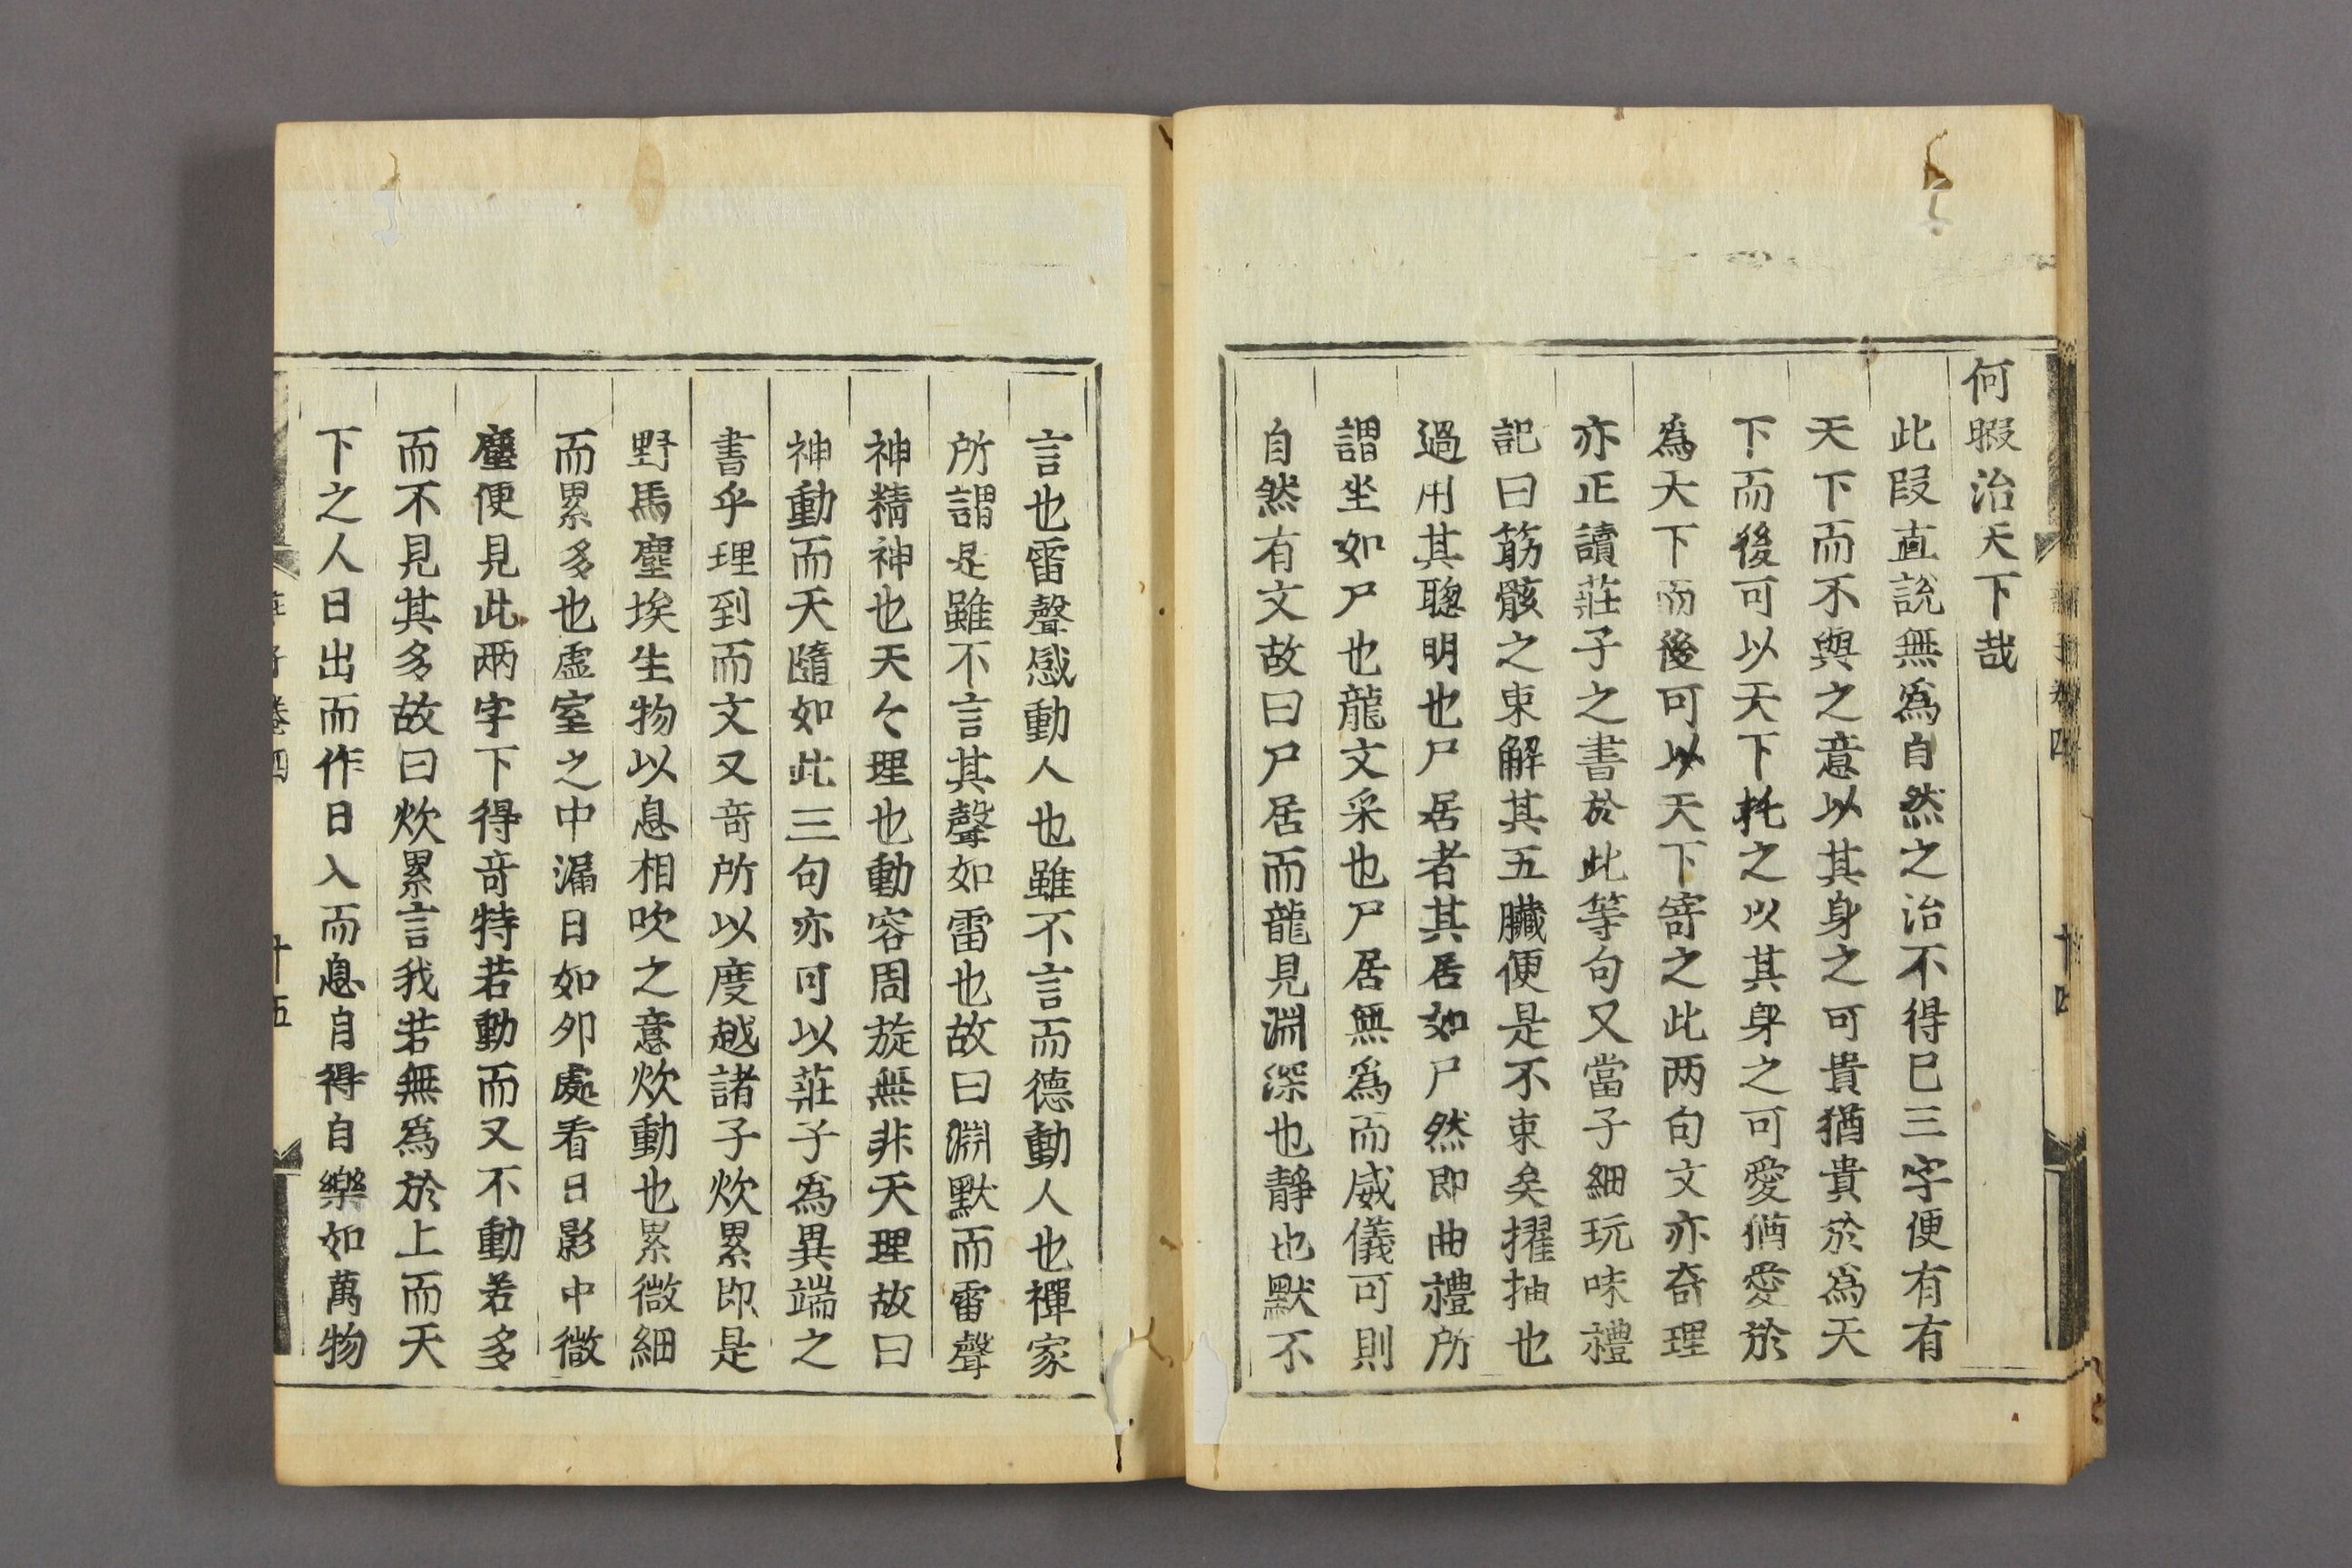 何暇治天下哉
此段直説無為自然之治不得已三字便有有
天下而不與之意以其身之可貴猶貴於為天
下而後可以天下托之以其身之可愛猶愛於
為天下而後可以天下寄之此两句文亦奇理
亦正讀莊子之書於此等句又當子細玩味禮
記曰筋骸之束解其五臟便是不束矣擢抽也
過用其聰明也尸居者其居如尸然即曲禮所
謂坐如尸也龍文采也尸居無為而威儀可則
自然有文故曰尸居而龍見淵深也静也默不
言也雷聲感動人也雖不言而德動人也禪家
所謂是雖不言其聲如雷也故曰淵默而雷聲
神精神也天々理也動容周旋無非天理故曰
神動而天隨如此三句亦可以莊子為異端之
書乎理到而文又竒所以度越諸子炊累即是
野馬塵埃生物以息相吹之意炊動也累微細
而累多也虛室之中漏日如卯處看日影中微
塵便見此两字下得竒特若動而又不動若多
而不見其多故曰炊累言我若無為於上而天
下之人日出而作日入而息自得自樂如萬物
卷四
十五